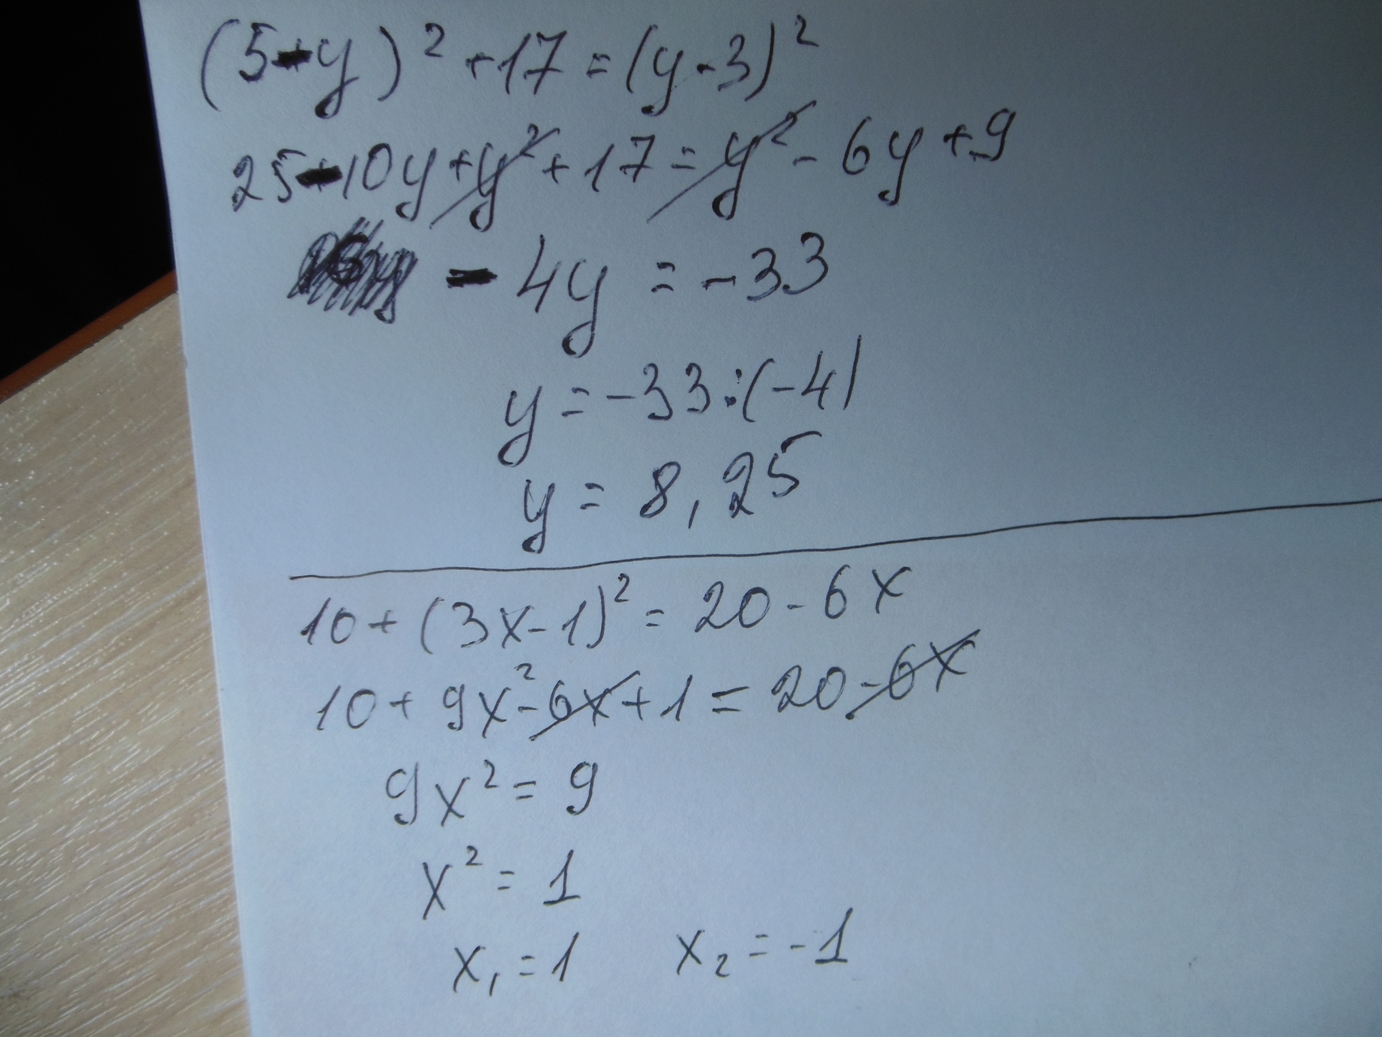 (5-y)²+17=(y-3)²
25-10y+y²+17=y²-6y+9
-4y=-33
y=-33:(-4)
y=8,25
10+(3x-1)²=20-6x
10+9x²-6x+1=20-6x
9x²=9
x²=1
x₁=1 x₂=-1